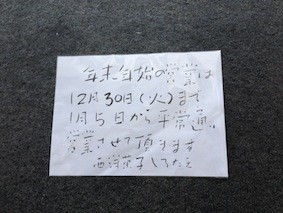 年末年始の営業は
12月30日(火)まで
1月5日から平常通り
営業させて頂きます
西洋菓子しろたえ